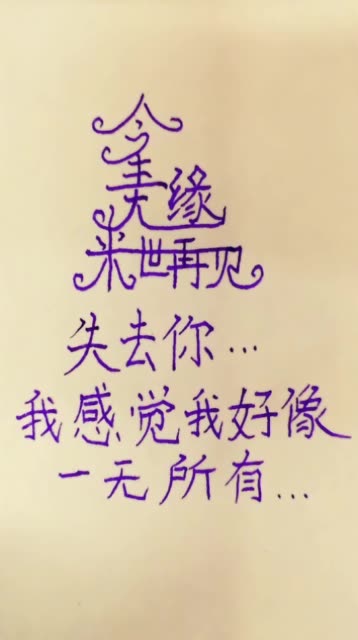 今
生
无缘
来世再见
失去你…
我感觉我好像
一无所有…